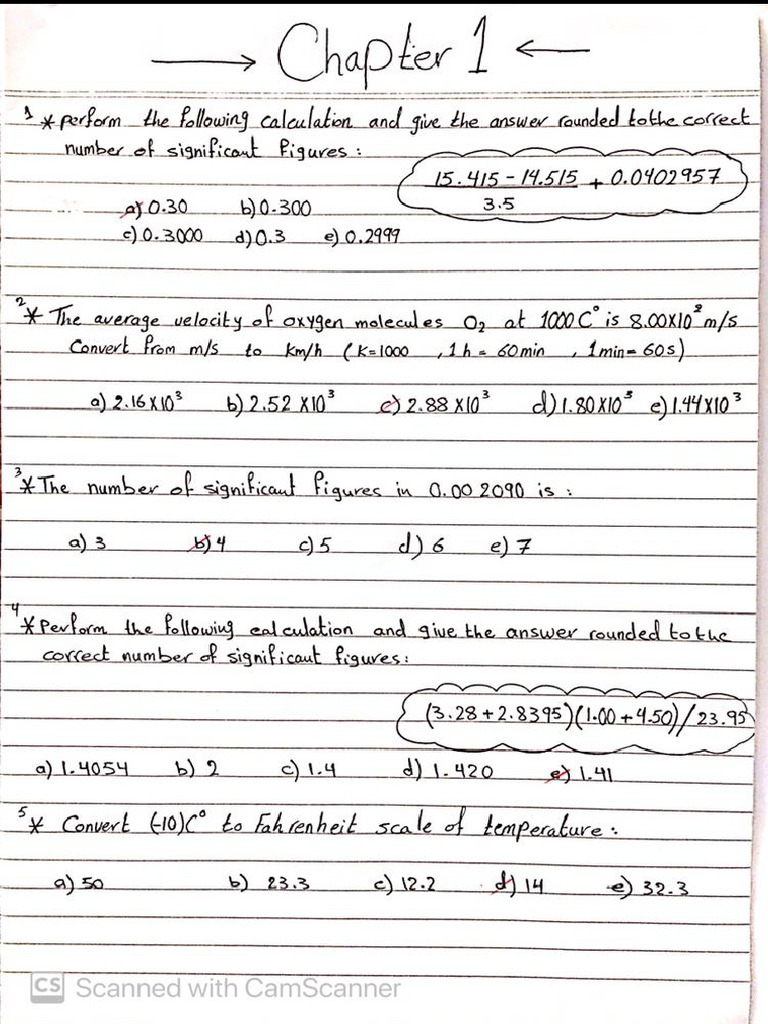 → Chapter 1 ←
1 * perform the following calculation and give the answer rounded to the correct
number of significant figures :
15.415 - 14.515 / 3.5 + 0.0402957
a) 0.30 b) 0.300
c) 0.3000 d) 0.3 e) 0.2999
2 * The average velocity of oxygen molecules O₂ at 1000 C° is 8.00X10² m/s
Convert from m/s to km/h (K=1000 , 1h = 60min , 1min= 60s)
a) 2.16 X10³ b) 2.52 X10³ c) 2.88 X10³ d) 1.80X10³ e) 1.44X10³
3 * The number of significant figures in 0.002090 is :
a) 3 b) 4 c) 5 d) 6 e) 7
4 * Perform the following calculation and give the answer rounded to the
correct number of significant figures:
(3.28 + 2.8395)(1.00 + 4.50) / 23.95
a) 1.4054 b) 2 c) 1.4 d) 1.420 e) 1.41
5 * Convert (-10)C° to Fahrenheit scale of temperature :
a) 50 b) 23.3 c) 12.2 d) 14 e) 32.3
CS Scanned with CamScanner